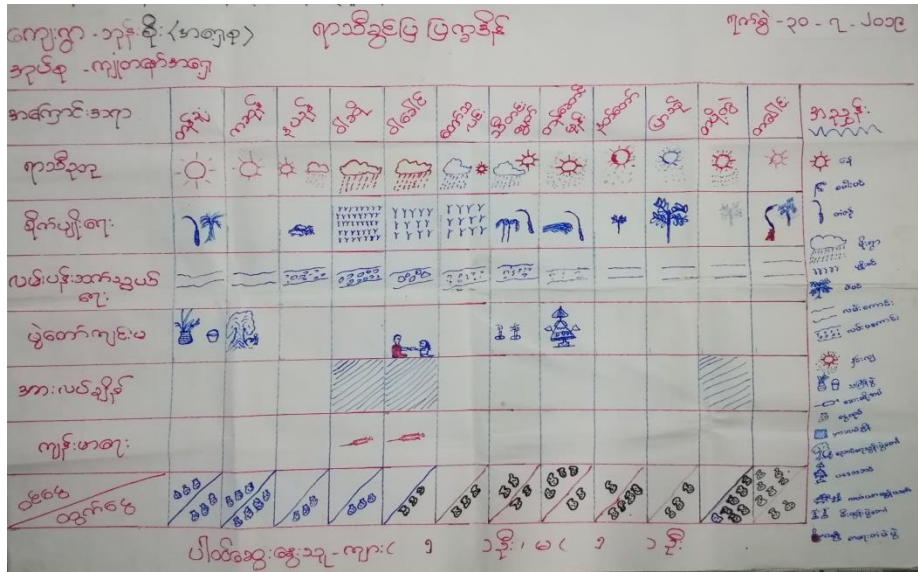 ကျေးရွာ - ဘုန်းစိုး (အရှေ့စု)
ရာသီခွင်ပြ ပြက္ခဒိန်
ရက်စွဲ - ၃၀ - ၇ - ၂၀၁၉
အုပ်စု - ကျုံတနော်အရှေ့
အကြောင်းအရာ
တန်ခူး
ကဆုန်
နယုန်
ဝါဆို
ဝါခေါင်
တော်သလင်း
သီတင်းကျွတ်
တန်ဆောင်မုန်း
နတ်တော်
ပြာသို
တပို့တွဲ
တပေါင်း
အညွှန်း
ရာသီဥတု
နေ
စိုက်ပျိုးရေး
မိုးရွာ
လမ်းပန်းဆက်သွယ်ရေး
လမ်းကောင်း
လမ်းမကောင်း
ပွဲတော်ကျင်းပ
အားလပ်ချိန်
ကျန်းမာရေး
ဝင်ငွေ
ထွက်ငွေ
ပါဝင်ဆွေးနွေးသူ - ကျား ( ၅ ) ဦး ၊ မ ( ၅ ) ဦး